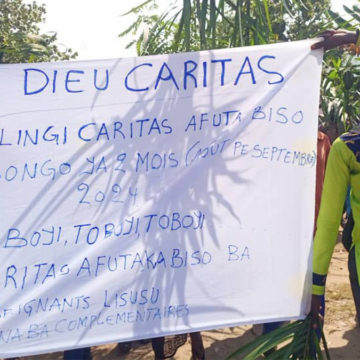 DIEU CARITAS
LINGI CARITAS AFUTA BISO
BONGO YA 2 MOIS (AOÛT PE SEPTEMBRE)
2024
BOYI, TOBOYI, TOBOYI
RITAS AFUTAKA BISO BA
EIGNANTS LISUSU
NA BA COMPLEMENTAIRES